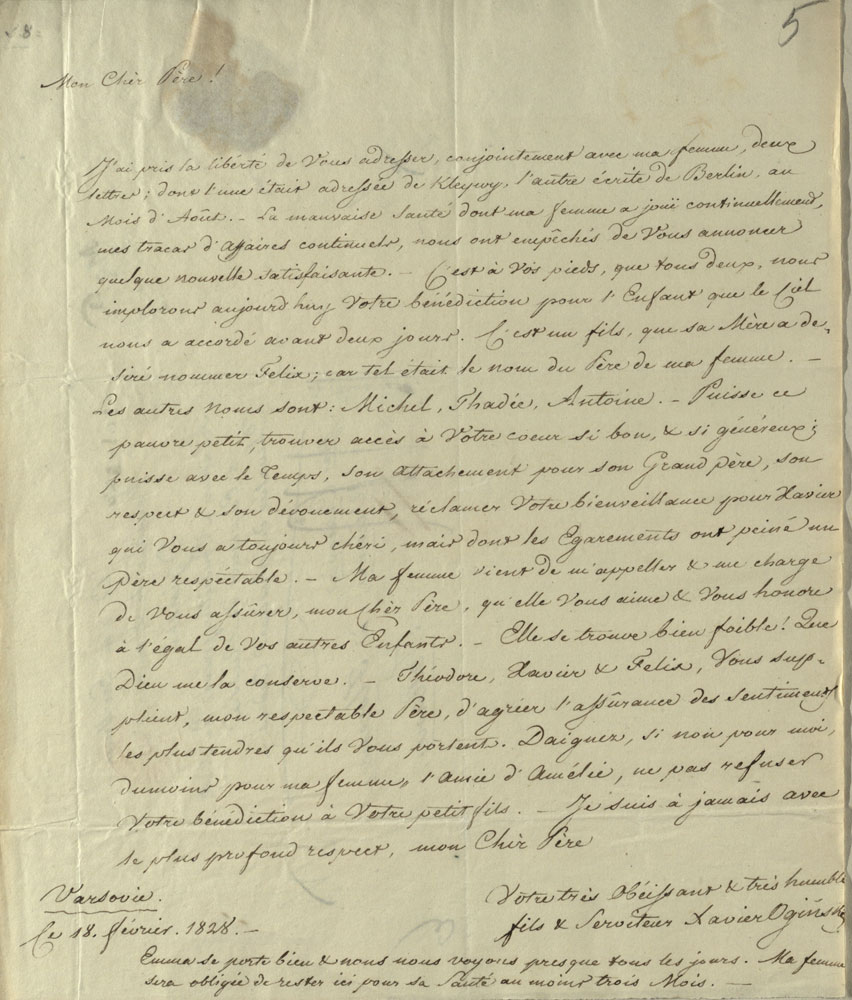 5
Mon Cher Père!
J'ai pris la liberté de Vous adresser, conjointement avec ma femme, deux
lettres; dont l'une était adressée de Kleywy, l'autre écrite de Berlin, au
Mois d'Août. – La mauvaise Santé dont ma femme a jouï continuellement,
mes tracas d'Affaires continuels, nous ont empêchés de Vous annoncer
quelque nouvelle satisfaisante. – C'est à Vos pieds, que tous deux, nous
implorons aujourd'huy Votre bénédiction pour l'Enfant que le Ciel
nous a accordé avant deux jours. C'est un fils, que sa Mère a dé-
siré nommer Felix; car tel était le nom du Père de ma femme. –
Les autres Noms sont: Michel, Thadée, Antoine. – Puisse ce
pauvre petit, trouver accès à Votre coeur si bon, & si généreux;
puisse avec le Temps, son Attachement pour son Grand père, son
respect & son dévouement, réclamer Votre bienveillance pour Xavier
qui Vous a toujours chéri, mais dont les Egarements ont peiné un
Père respéctable. – Ma femme vient de m'appeller & me charge
de Vous assûrer, mon Chèr Père, qu'elle Vous aime & Vous honore
à l'égal de Vos autres Enfants. – Elle se trouve bien foible! Que
Dieu me la conserve. – Théodore, Xavier & Felix, Vous sup-
plient, mon respectable Père, d'agréer l'assûrance des Sentiments
les plus tendres qu'ils Vous portent. Daignez, si non pour moi,
dumoins pour ma femme, l'Amie d'Amélie, ne pas refuser
Votre bénédiction à Votre petit fils. – Je suis à jamais avec
le plus profond respect, mon Chèr Père
Votre très Obéissant & très humble
fils & Serviteur Xavier Ogiński
Varsovie.
Ce 18. février. 1828. –
Emma se porte bien & nous nous voyons presque tous les jours. Ma femme
sera obligée de rester ici pour sa Santé au moins trois Mois. –